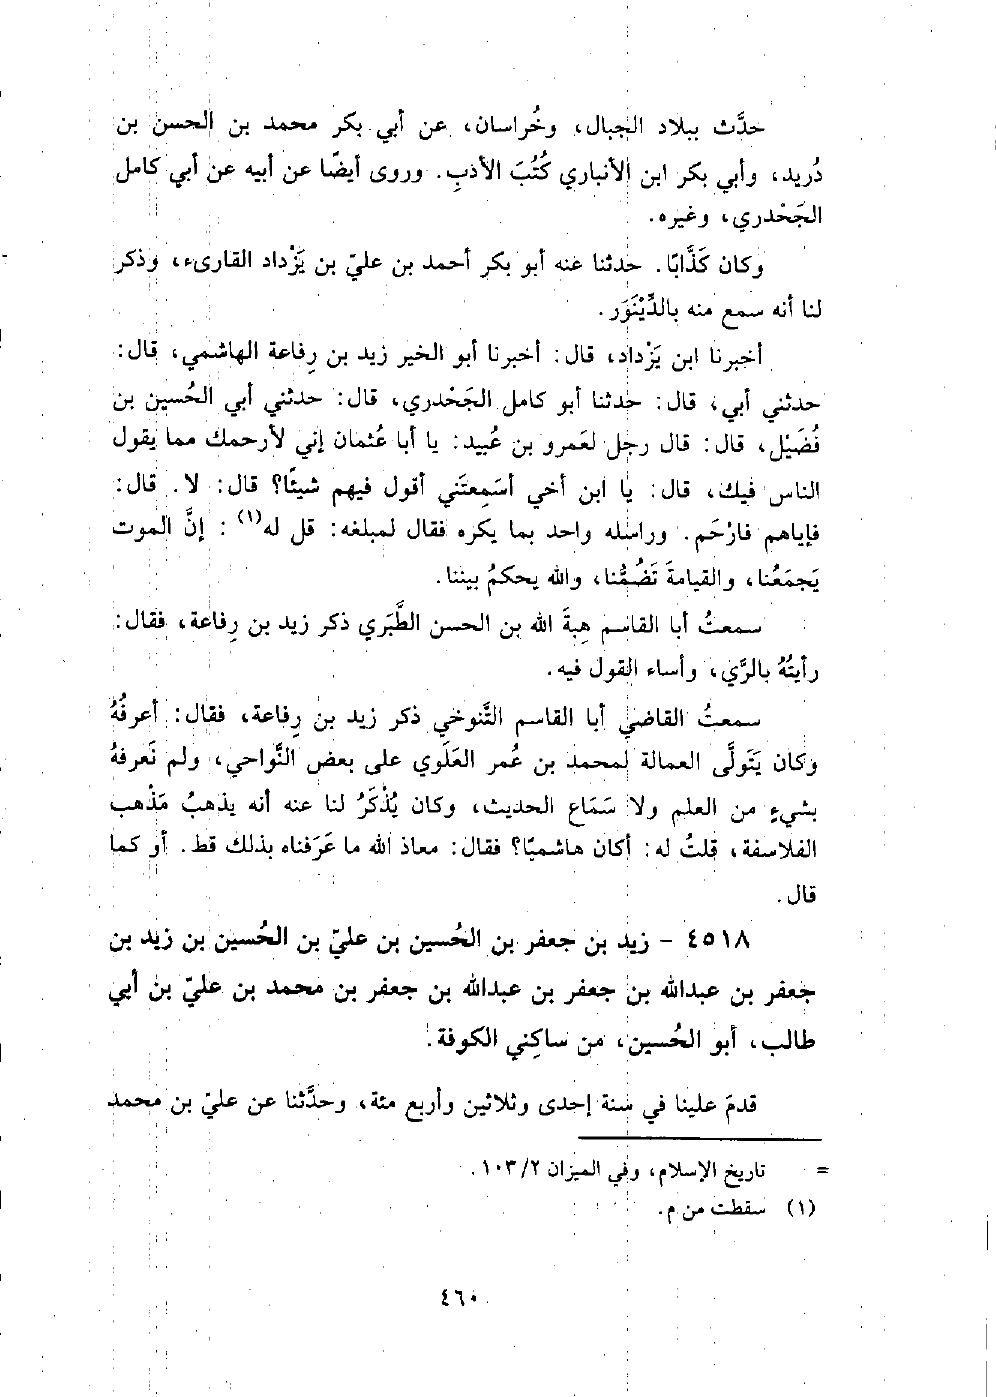 حدَّث ببلاد الجبال، وخُراسان، عن أبي بكر محمد بن الحسن بن
دُريد، وأبي بكر ابن الأنباري كُتُبَ الأدبِ. وروى أيضًا عن أبيه عن أبي كامل
الجَحْدري، وغيره.
وكان كَذَّابًا. حدثنا عنه أبو بكر أحمد بن عليّ بن يَزْداد القارىء، وذكر
لنا أنه سمع منه بالدِّيْنَوَر.
أخبرنا ابن يَزْداد، قال: أخبرنا أبو الخير زيد بن رِفاعة الهاشمي، قال:
حدثني أبي، قال: حدثنا أبو كامل الجَحْدري، قال: حدثني أبي الحُسين بن
فُضَيْل، قال: قال رجل لعَمرو بن عُبيد: يا أبا عُثمان إني لأرحمك مما يقول
الناس فيك، قال: يا ابن أخي أسَمِعتَني أقول فيهم شيئًا؟ قال: لا. قال:
فإياهم فارْحَم. وراسله واحد بما يكره فقال لمبلغه: قل له(١): إنَّ الموت
يَجمَعُنا، والقيامةَ تَضُمُّنا، والله يحكمُ بيننا.
سمعتُ أبا القاسم هِبةَ الله بن الحسن الطَّبَري ذكر زيد بن رِفاعة، فقال:
رأيتُهُ بالرَّي، وأساء القول فيه.
سمعتُ القاضي أبا القاسم التَّنوخي ذكر زيد بن رِفاعة، فقال: أعرفُهُ
وكان يَتَولَّى العمالة لمحمد بن عُمر العَلَوي على بعض النَّواحي، ولم نَعرفهُ
بشيءٍ من العلم ولا سَمَاع الحديث، وكان يُذْكَرُ لنا عنه أنه يذهبُ مَذْهب
الفلاسفة، قلتُ له: أكان هاشميًا؟ فقال: معاذ الله ما عَرَفناه بذلك قط. أو كما
قال.
٤٥١٨ - زيد بن جعفر بن الحُسين بن عليّ بن الحُسين بن زيد بن
جعفر بن عبدالله بن جعفر بن عبدالله بن جعفر بن محمد بن عليّ بن أبي
طالب، أبو الحُسين، من ساكِني الكوفة.
قدمَ علينا في سَنة إحدى وثلاثين وأربع مئة، وحدَّثنا عن عليّ بن محمد
= تاريخ الإسلام، وفي الميزان ٢/ ١٠٣.
(١) سقطت من م.
٤٦٠